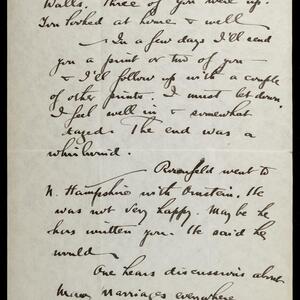 Walls. Three of you were up.
You looked at home & well
— In a few days I'll send
you a print or two of you
& I'll follow up with a couple
of other prints. I must let down
I feel well in & somewhat
. The end was a
whirlwind.
Rosenfeld went to
N. Hampshire with Ornstein. He
was not very happy. Maybe he
has written you. He said he
would —
One hears discussions about
Marriages everywhere